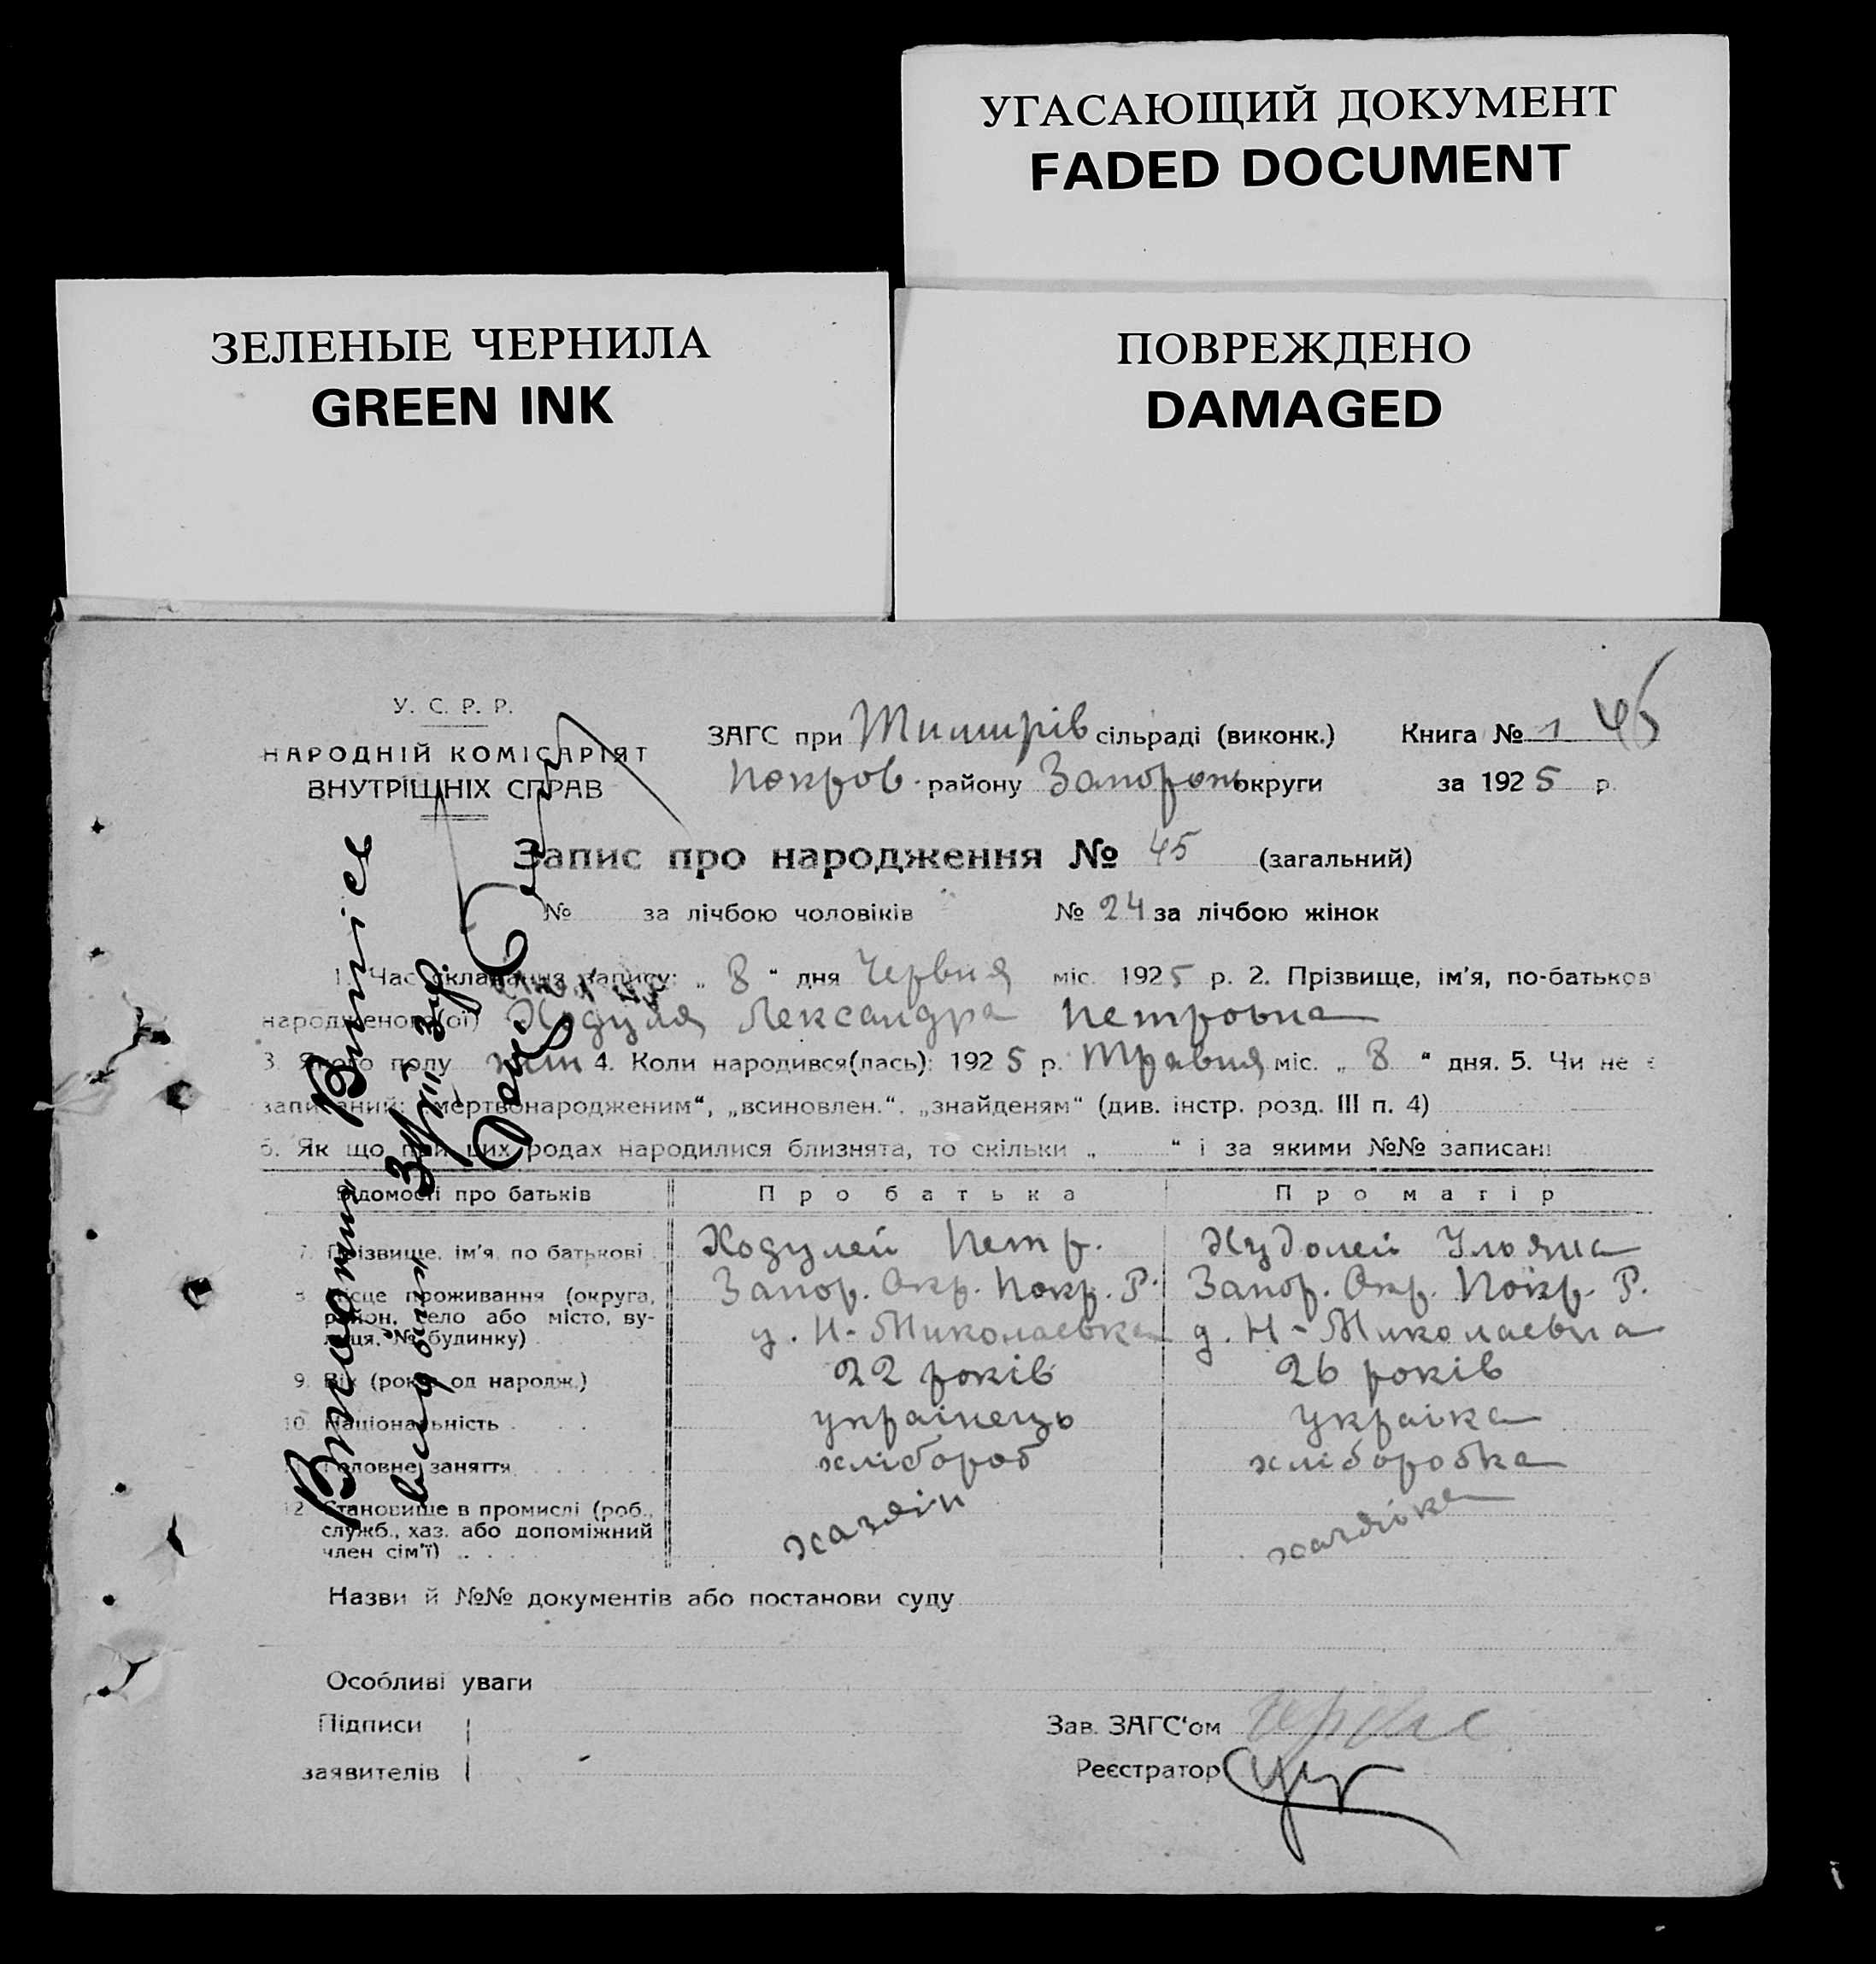 УГАСАЮЩИЙ ДОКУМЕНТ
FADED DOCUMENT
ЗЕЛЕНЫЕ ЧЕРНИЛА
GREEN INK
ПОВРЕЖДЕНО
DAMAGED
У. С. Р. Р.
НАРОДНІЙ КОМІСАРІЯТ
ВНУТРІШНІХ СПРАВ
45
ЗАГС при сільраді (виконк.) Книга № 1
Покров. району Запорож округи за 1925 р.
Запис про народження № 45 (загальний)
№ за лічбою чоловіків № 24 за лічбою жінок
1. Час складання запису: „ 8 “ дня Червня міс. 1925 р. 2. Прізвище, ім'я, по-батьков
народженого(ої) Лександра Петровна
3. Якого полу жін 4. Коли народився(лась): 1925 р. Травня міс. „ 8 “ дня. 5. Чи не є
записаний: „мертвонародженим“, „всиновлен.“, „знайденям“ (див. інстр. розд. III п. 4)
6. Як що при цих родах народилися близнята, то скільки „ “ і за якими №№ записані
Відомості про батьків Про батька Про матір
7. Прізвище, ім'я, по батькові Ходулей Петр. Худолей Уляна
8. Місце проживання (округа, район, село або місто, вулиця, № будинку)
Запор. Окр. Покр. Р. Запор. Окр. Покр. Р.
Н-Миколаевка Н-Миколаевка
9. Вік (років од народж.) 22 років 26 років
10. Національність українець украіка
11. Головне заняття хлібороб хліборобка
12. Становище в промислі (роб., служб., хаз. або допоміжний член сім'ї) хазяін хазяйка
Назви й №№ документів або постанови суду
Особливі уваги
Підписи
заявителів
Зав. ЗАГС'ом
Реєстратор